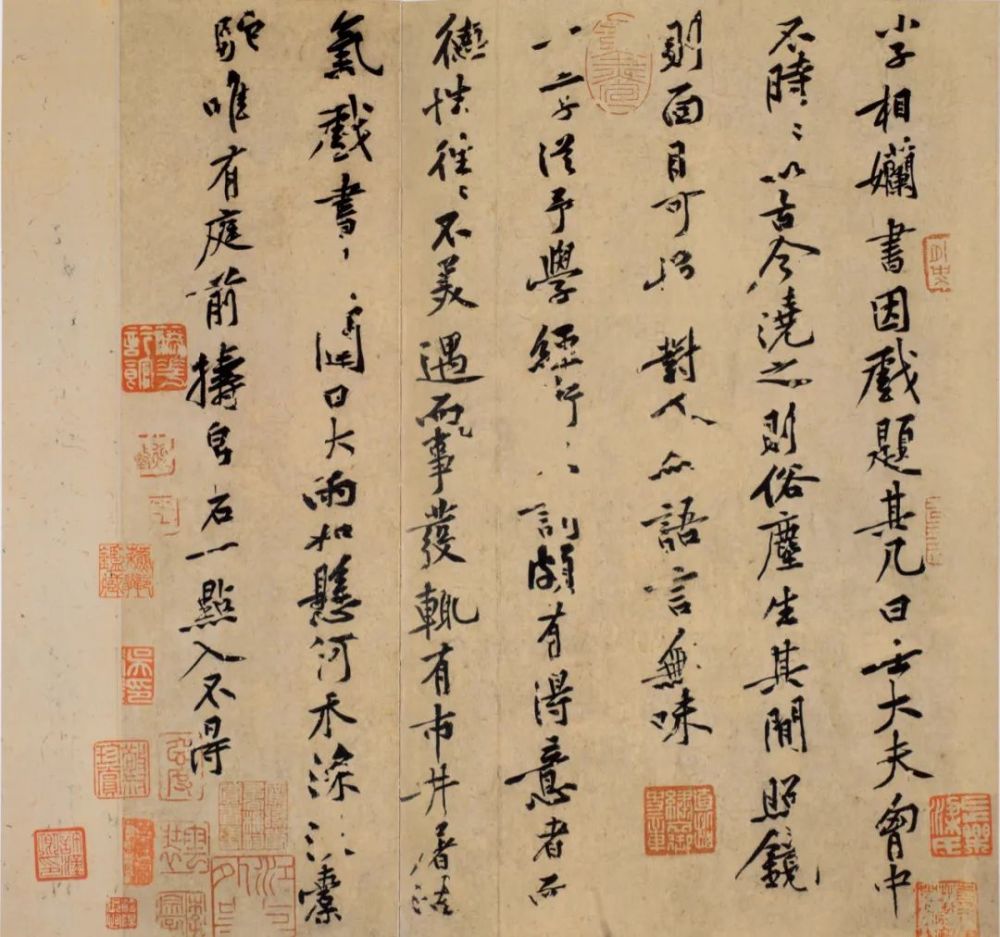 小子相嬾書因戲題其几曰士大夫胷中
不時〻以古今澆之則俗塵生其間照鏡
則面目可憎對人亦語言無味
一二子從予學經行〻訓頗有得意者而
德性往〻不美遇事發輒有市井屠沽
氣戲書〻日大雨如懸河水深橐
駝唯有庭前擣帛石一點入不得